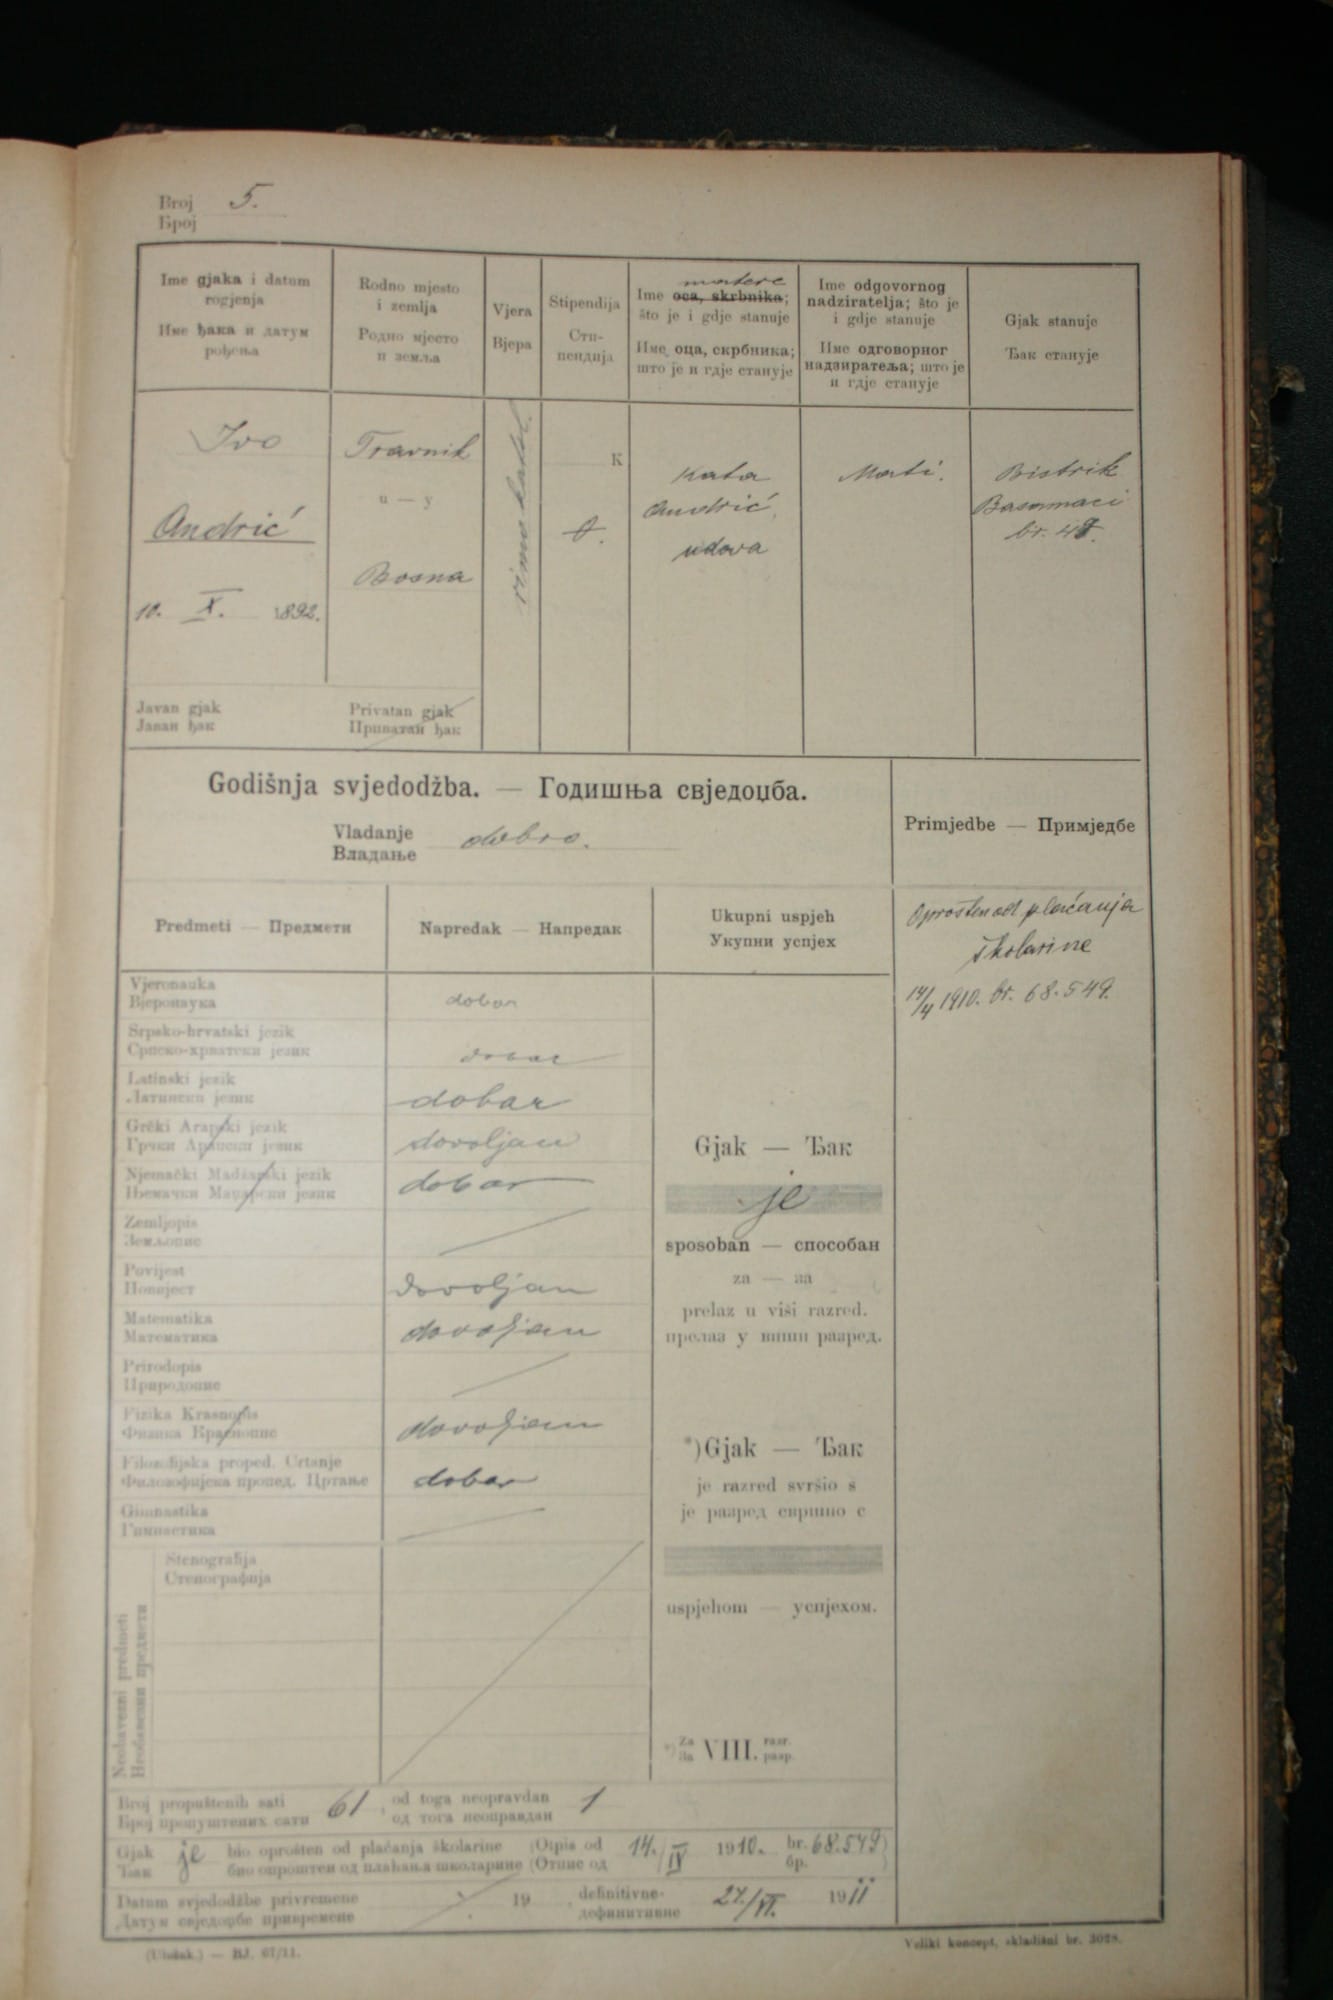 Broj 5.
Број
Ime gjaka i datum
rogjenja
Име ђака и датум
рођења
Rodno mjesto
i zemlja
Родно мјесто
и земља
Vjera
Вјера
Stipendija
Сти-
пендија
matere
Ime oca, skrbnika;
što je i gdje stanuje
Име, оца, скрбника;
што је и гдје станује
Ime odgovornog
nadziratelja; što je
i gdje stanuje
Име одговорног
надзиратеља; што је
и гдје станује
Gjak stanuje
Ђак станује
Ivo
Andrić
10. X. 1892.
Travnik
u — у
Bosna
rimo katol.
K
Kata
Andrić,
udova
Mati.
Bistrik
Basamaci
br.
Javan gjak
Јаван ђак
Privatan gjak
Приватан ђак
Godišnja svjedodžba. — Годишња свједоџба.
Vladanje dobro.
Владање
Primjedbe — Примједбе
Predmeti — Предмети
Napredak — Напредак
Ukupni uspjeh
Укупни успјех
Oprošten od plaćanja
školarine
14/4 1910. br. 68.549.
Vjeronauka dobar
Вјеронаука
Srpsko-hrvatski jezik dobar
Српско-хрватски језик
Latinski jezik dobar
Латински језик
Grčki Arapski jezik dovoljan
Грчки Арапски језик
Njemački Madžarski jezik dobar
Њемачки Маџарски језик
Zemljopis
Земљопис
Povijest dovoljan
Повијест
Matematika dovoljan
Математика
Prirodopis
Природопис
Fizika Krasnopis dovoljan
Физика Краснопис
Filozofijska proped. Crtanje dobar
Филозофијска пропед. Цртање
Gimnastika
Гимнастика
Neobavezni predmeti
Необавезни предмети
Stenografija
Стенографија
Gjak — Ђак
je
sposoban — способан
za — за
prelaz u viši razred.
прелаз у виши разред.
*) Gjak — Ђак
je razred svršio s
је разред свршио с
uspjehom — успјехом.
*) Za VIII. razr.
За разр.
Broj propuštenih sati 61, od toga neopravdan 1
Број пропуштених сати од тога неоправдан
Gjak je bio oprošten od plaćanja školarine (Otpis od 14./IV 1910. br. 68.549)
Ђак био опроштен од плаћања школарине (Отпис од бр. )
Datum svjedodžbe privremene 19 , definitivne 27./VI. 1911
Датум свједоџбе привремене дефинитивне
(Uložak.) — BJ. 67/11.
Veliki koncept, skladišni br. 3028.